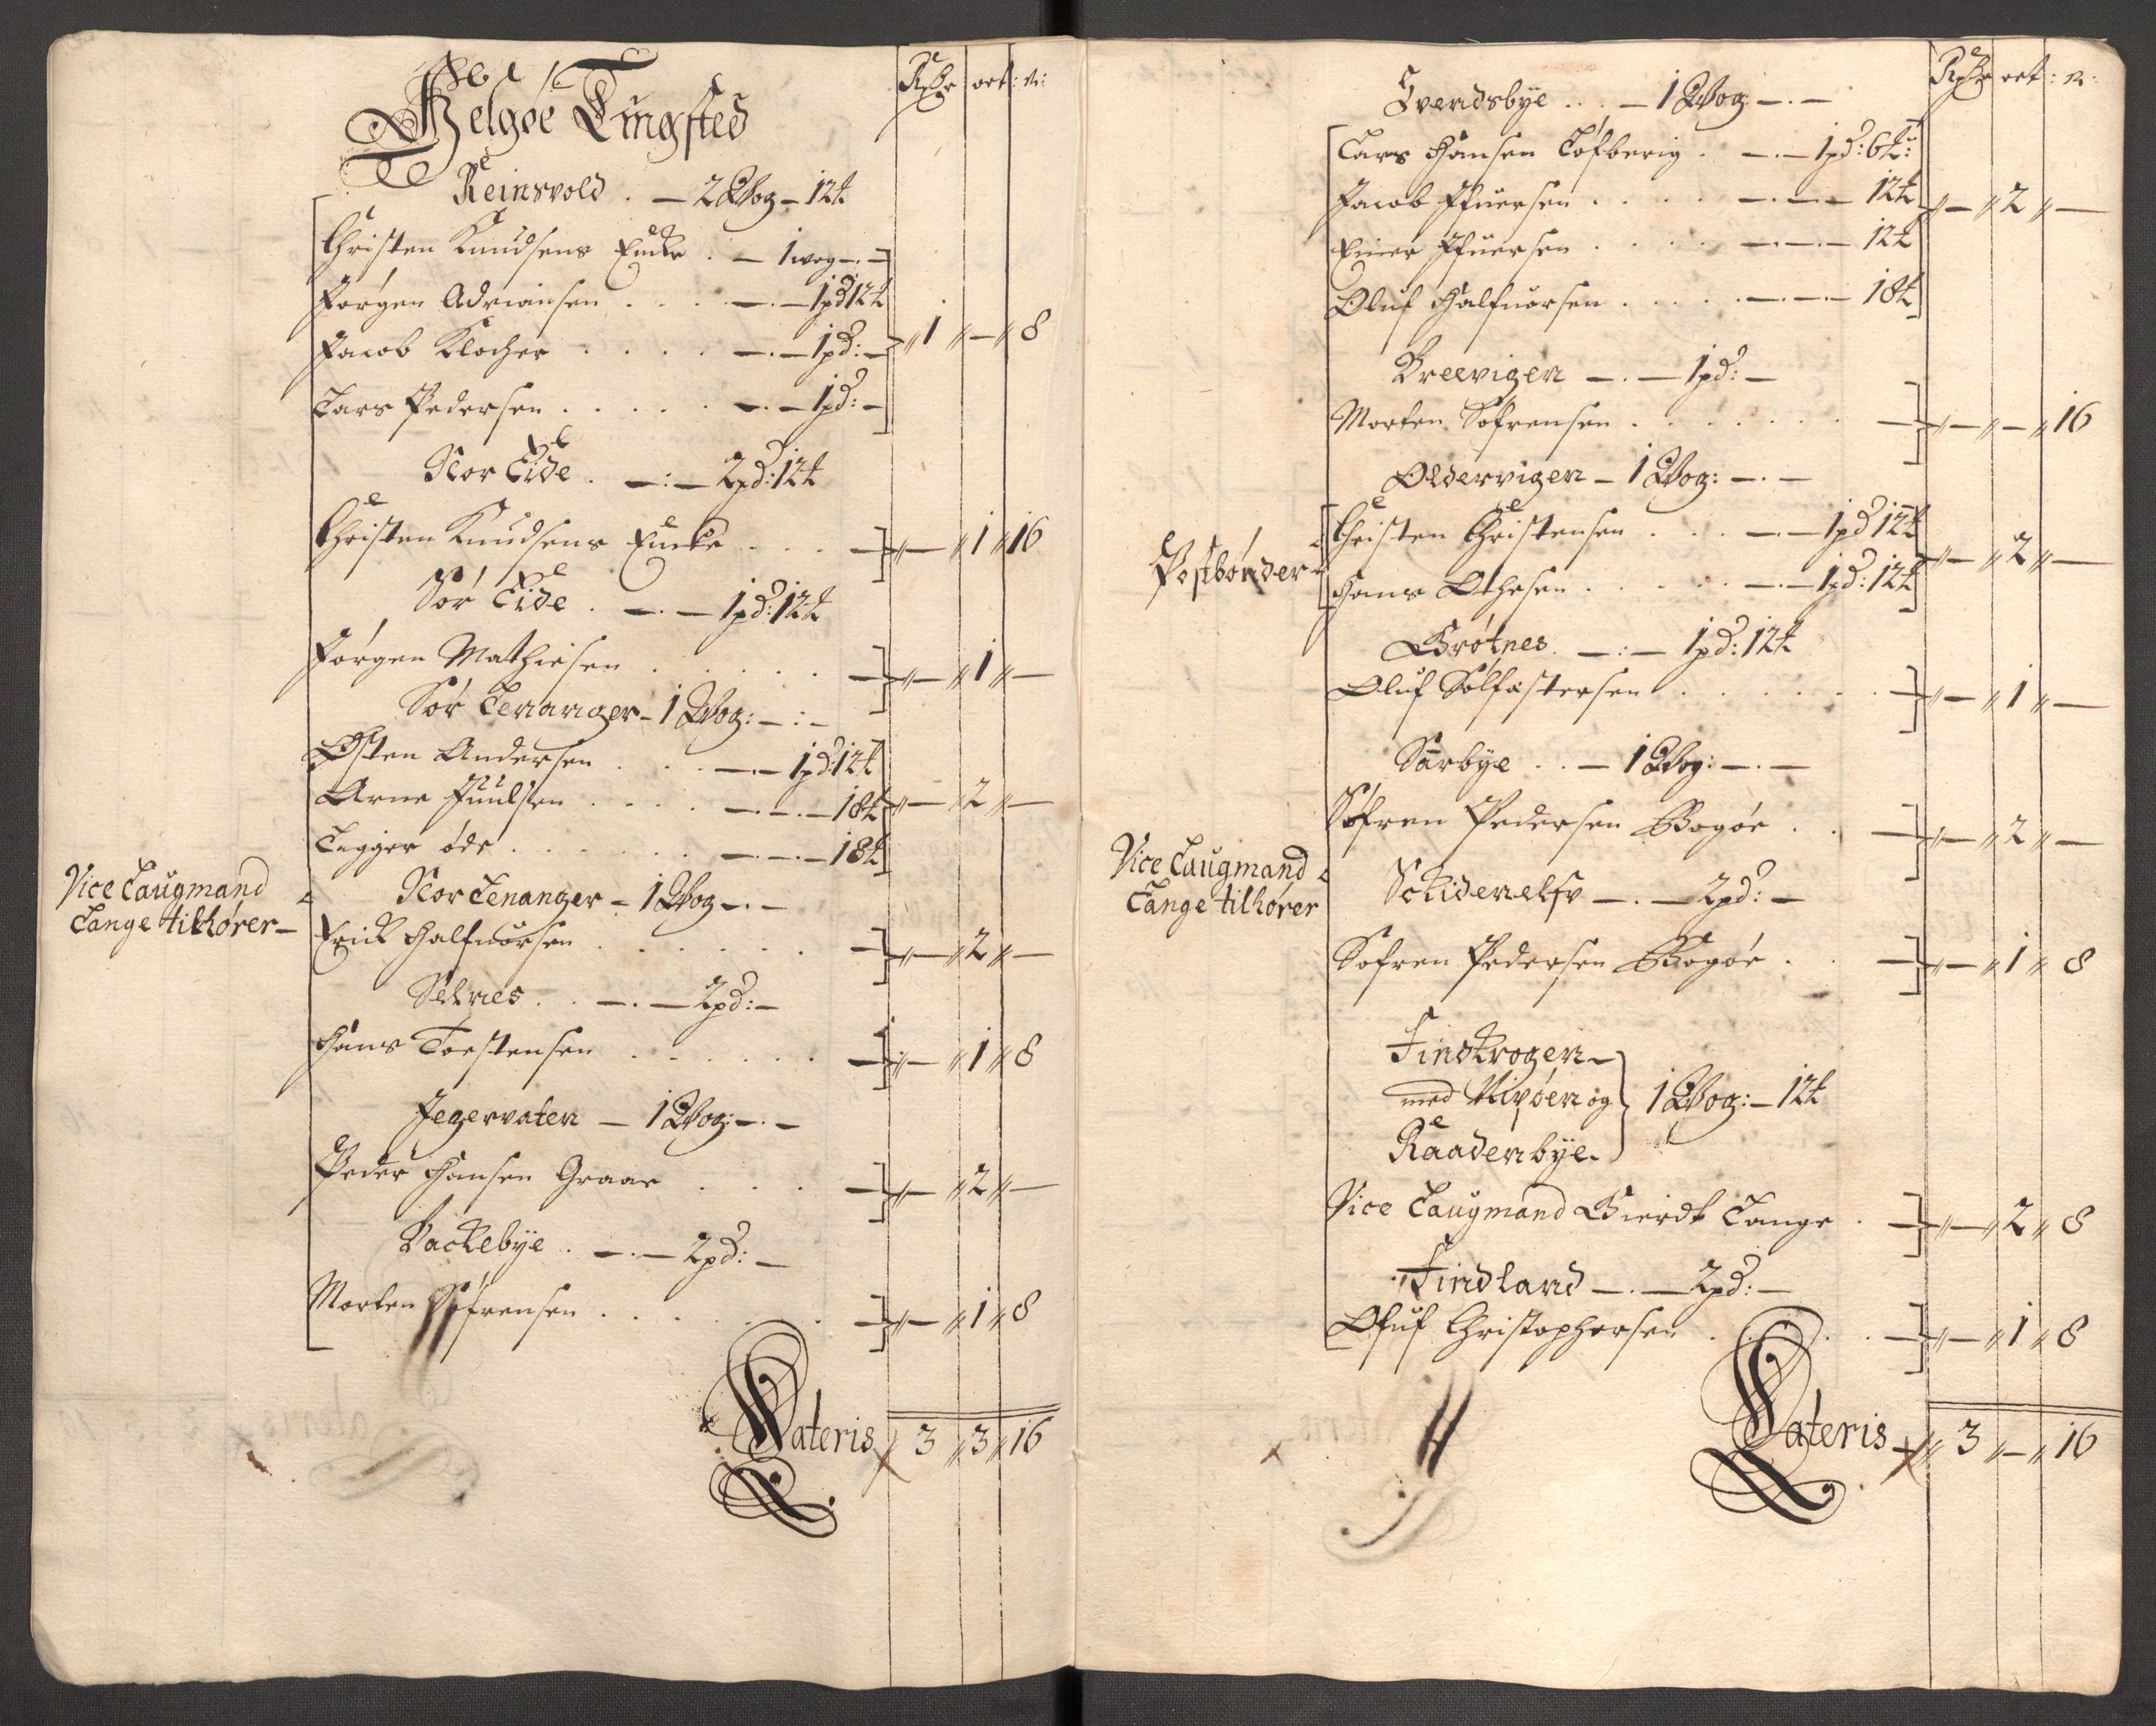 Helgøe Tingsted
Rdr ort: s:
Reinsvold . — 2 Wog – 12 ℔
Christen Knudsens Encke . — 1 wog –.–
Jørgen Adriansen . . . —.— 1 pd 12 ℔
Jacob Klocher . . . . —.— 1 pd: –
Lars Pedersen . . . . . —.— 1 pd: –
〃 1 〃 — 〃 8
Nor Eide . —:— 2 pd: 12 ℔
Christen Knudsens Encke . . . — 〃 — 〃 1 〃 16
Sør Eide . —.— 1 pd: 12 ℔
Jørgen Mathiesen . . . . . — 〃 — 〃 1 〃 —
Sør Lenanger – 1 Wog: –:–
Østen Andersen . . . —.— 1 pd: 12 ℔
Arne Juulsen . . . . —.—.— 18 ℔ 〃 — 〃 2 〃 —
Legger øde . . . . . . —.—.— 18 ℔
Vice Laugmand
Lange tilhører –
Nor Lenanger – 1 Wog –.–
Erick Halfuorsen . . . . . . — 〃 — 〃 2 〃 —
Selnes . . —.— 2 pd: –
Hans Torstensen . . . . . . — 〃 — 〃 1 〃 8
Jegervaten — 1 Wog: –.–
Peder Hansen Graae . . . — 〃 — 〃 2 〃 —
Vackebye . —.— 2 pd: –
Morten Søfrensen . . . . . — 〃 — 〃 1 〃 8
Lateris 〃 3 〃 3 〃 16
Rdr ort: s:
Svendsbye . . . — 1 Wog –.–
Lars Hansen Løfberig . —.— 1 pd: 6 ℔:
Jacob Ifuersen . . . . —.—.— 12 ℔ 〃 — 〃 2 〃 —
Einer Ifuersen . . . . —.—.— 12 ℔
Oluf Halfuorsen . . . . —.—.— 18 ℔
Breevigen —.— 1 pd: –
Morten Søfrensen . . . . . . . — 〃 — 〃 — 〃 16
Oldervigen – 1 Wog: –.–
Postbønder
Christen Christensen . . . —.— 1 pd 12 ℔
Hans Othesen . . . . . —.— 1 pd: 12 ℔
〃 — 〃 2 〃 —
Grøtnes . —:— 1 pd: 12 ℔
Oluf Solfastersen . . . . . . — 〃 — 〃 1 〃 —
Sarbye . . — 1 Wog: –.–
Søfren Pedersen Bogøe . . — 〃 — 〃 2 〃 —
Vice Laugmand
Lange tilhører
Schidenelfv —.— 2 pd: –
Søfren Pedersen Bogøe . . — 〃 — 〃 1 〃 8
Findkrogen –
med Nivøen og
Raadenbye.
1 Wog: – 12 ℔
Vice Laugmand Gierdt Lange . — 〃 — 〃 2 〃 8
Findland —.— 2 pd: –
Oluf Christophersen . . . . . — 〃 — 〃 1 〃 8
Lateris 〃 3 〃 — 〃 16